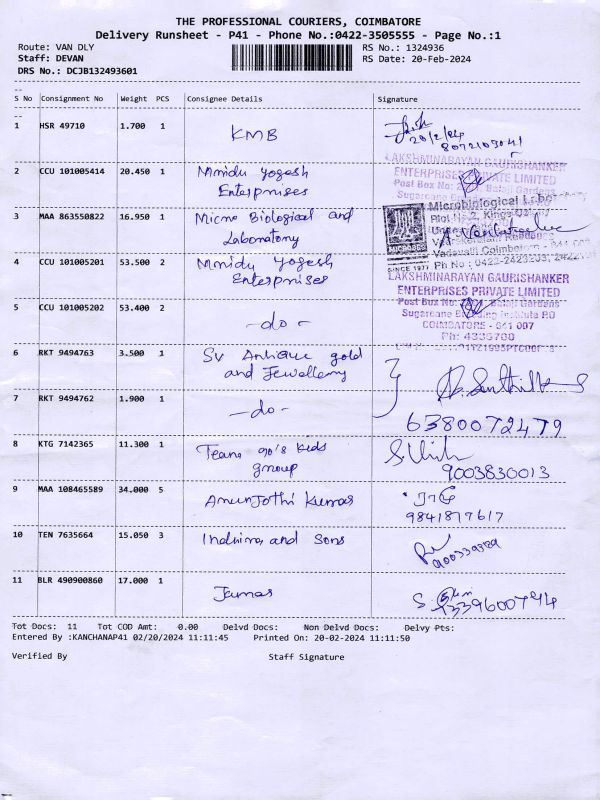 THE PROFESSIONAL COURIERS, COIMBATORE
Delivery Runsheet - P41 - Phone No.:0422-3505555 - Page No.:1
Route: VAN DLY
RS No.: 1324936
Staff: DEVAN
RS Date: 20-Feb-2024
DRS No.: DCJB132493601
S No Consignment No Weight PCS Consignee Details Signature
1 HSR 49710 1.700 1 KMB
20/2/24
8072103041
2 CCU 101005414 20.450 1 Mmidu Yogesh
Enterprises
LAKSHMINARAYAN GAURISHANKER
ENTERPRISES PRIVATE LIMITED
Post Box No: Balaji Gardens
3 MAA 863550822 16.950 1 Micro Biological and
Laboratory
Microbiological Labo
Plot No 2, Kings
Vadavalli Coimbatore - 641
Ph No : 0422-2423203,
SINCE 1977
4 CCU 101005201 53.500 2 Mmidu Yogesh
Enterprises
LAKSHMINARAYAN GAURISHANKER
ENTERPRISES PRIVATE LIMITED
Post Box No: Balaji Gardens
5 CCU 101005202 53.400 2 -do-
Sugarcane Institute P.O
COIMBATORE - 641 007
6 RKT 9494763 3.500 1 SV Antique gold
and Jewellery
7 RKT 9494762 1.900 1 -do-
6380072479
8 KTG 7142365 11.300 1 Team 90's kids
group
9003830013
9 MAA 108465589 34.000 5 Arun Jothi Kumar
9841877617
10 TEN 7635664 15.050 3 and Sons
900339389
11 BLR 490900860 17.000 1 James
S
Tot Docs: 11 Tot COD Amt: 0.00 Delvd Docs: Non Delvd Docs: Delvy Pts:
Entered By :KANCHANAP41 02/20/2024 11:11:45 Printed On: 20-02-2024 11:11:50
Verified By Staff Signature